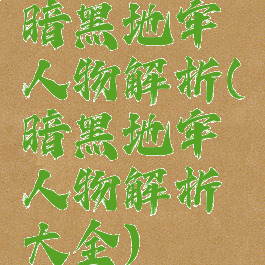 暗黑地牢
人物解析(
暗黑地牢
人物解析
大全)